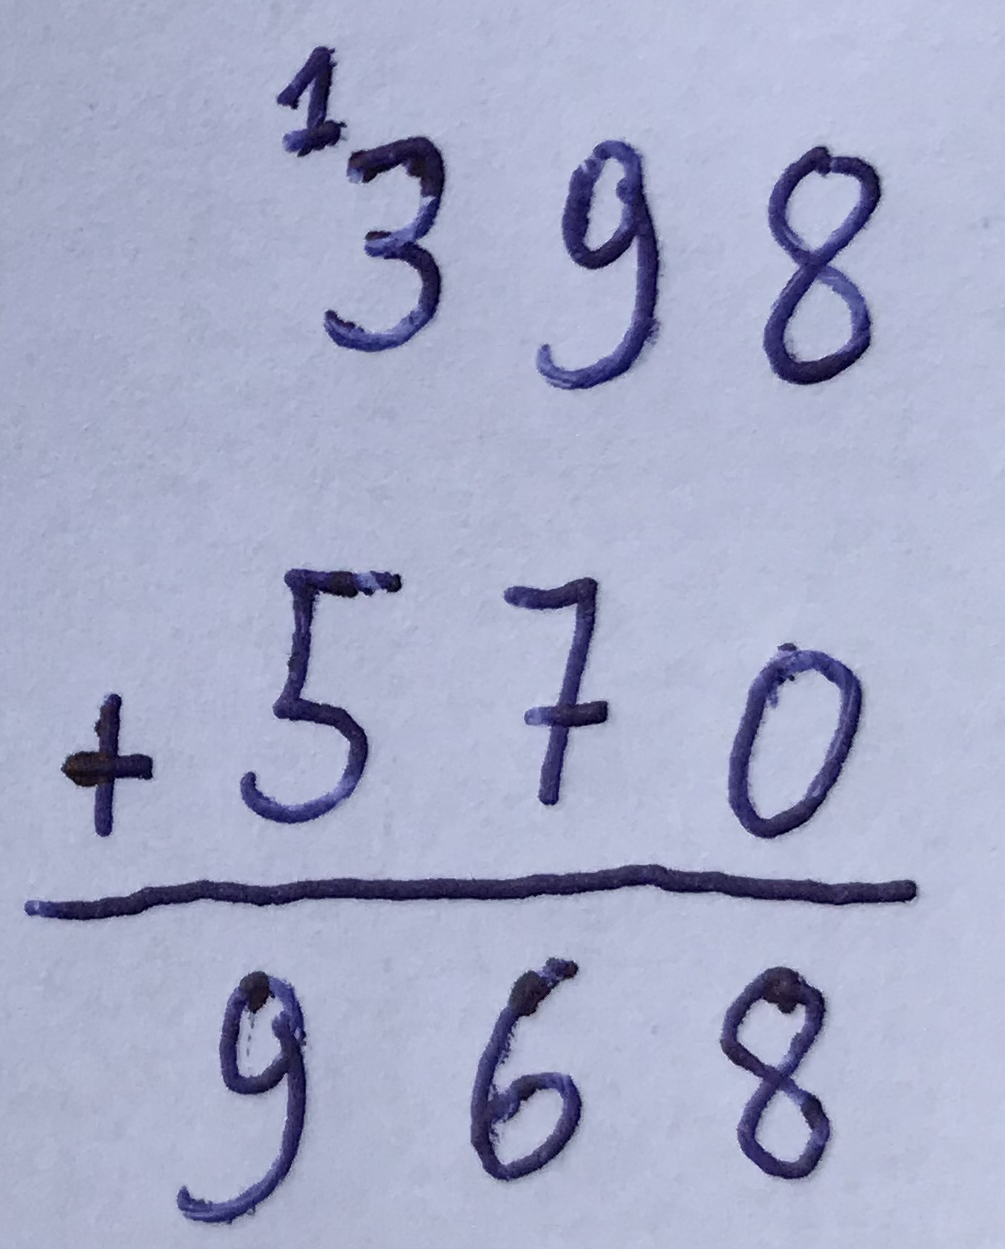 1
398
+ 570
968